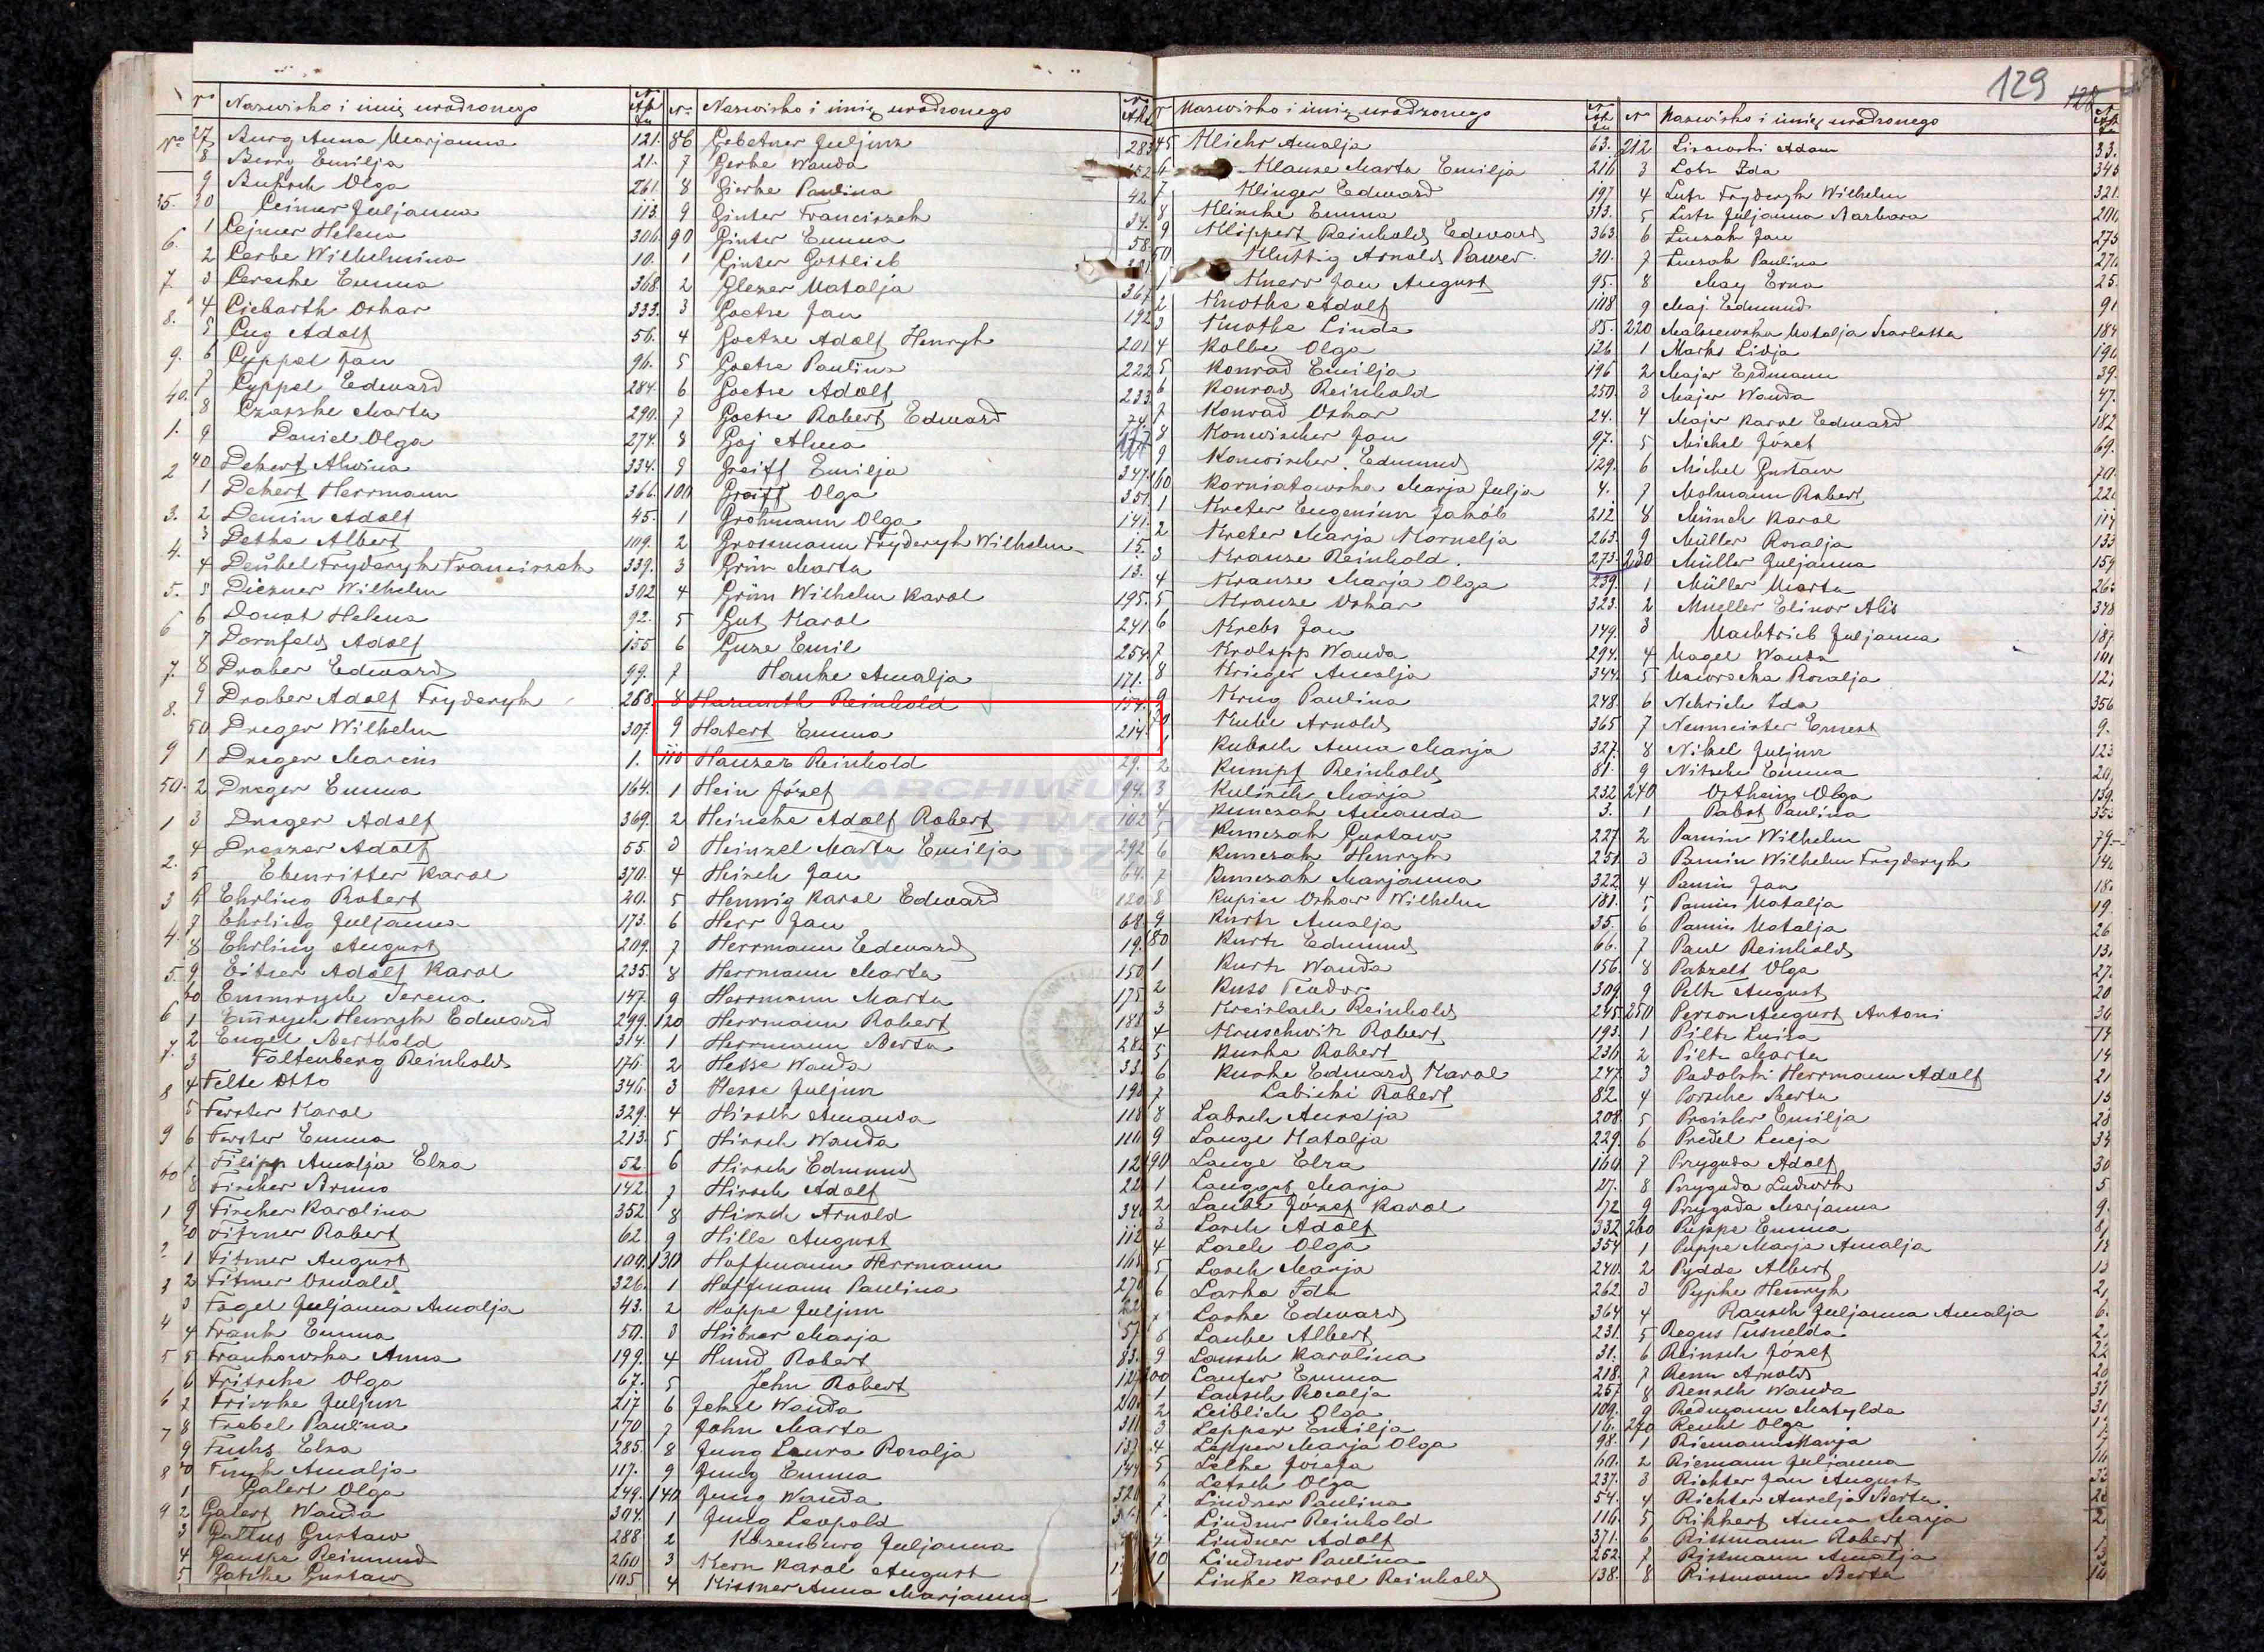 129
128
Nº Nazwisko i imię urodzonego Nº Aktu
27 Burg Anna Marjanna 121.
8 Burg Emilja 21.
9 Buksch Olga 261.
30 Ceimer Juljanna 113.
1 Cejmer Helena 306.
2 Cerbe Wilhelmina 10.
3 Cersche Emma 368.
4 Ciebarth Oskar 333.
5 Cug Adolf 56.
6 Cyppel Jan 96.
7 Cyppel Edward 284.
8 Czaschke Marta 290.
9 Daniel Olga 274.
40 Dekert Alwina 334.
1 Dekert Herrmann 366.
2 Demin Adolf 45.
3 Deske Albert 109.
4 Deübel Fryderyk Franciszek 339.
5 Diezner Wilhelm 302
6 Donat Helena 92.
7 Dornfeld Adolf 155
8 Draber Edward 99.
9 Draber Adolf Fryderyk 268
50 Dreger Wilhelm 307.
1 Dreger Marcin 1.
2 Dreger Emma 164.
3 Dreger Adolf 369.
4 Dreszer Adolf 55.
5 Ebenritter Karol 370.
6 Ehrling Robert 40.
7 Ehrling Juljanna 173.
8 Ehrling August 209.
9 Eitner Adolf Karol 235.
60 Emmrych Serena 147.
1 Emrych Henryk Edward 299.
2 Engel Berthold 314.
3 Faltenberg Reinhold 176.
4 Felte Otto 346.
5 Ferster Karol 329.
6 Ferster Emma 213.
7 Filipp Amalja Elza 52.
8 Fischer Bruno 142.
9 Fischer Karolina 352
70 Fitzner Robert 62.
1 Fitzner August 100.
2 Fitzner Oswald 326.
3 Fogel Juljanna Amalja 43.
4 Frank Emma 50.
5 Frankowska Anna 199.
6 Fritsche Olga 67.
7 Friszke Juljusz 217
8 Frobel Paulina 170
9 Fuchs Elza 285.
80 Funk Amalja 117.
1 Galert Olga 249.
2 Galert Wanda 304.
3 Gallus Gustaw 288
4 Gauspe Reimund 260
5 Gatzke Gustaw 105
Nº Nazwisko i imię urodzonego Nº Aktu
86 Gebetner Juljusz 283
7 Gerke Wanda 152
8 Gierke Paulina 42
9 Ginter Franciszek 34.
90 Ginter Emma 58.
1 Ginter Gottlieb
2 Glezer Natalja 367
3 Goetze Jan 192
4 Goetze Adolf Henryk 201
5 Goetze Paulina 222
6 Goetze Adolf 233
7 Goetze Robert Edward 74.
8 Goj Alma
9 Greiff Emilja 347.
100 Greiff Olga 351.
1 Grohmann Olga 141.
2 Grossmann Fryderyk Wilhelm 15.
3 Grün Marta 13.
4 Grün Wilhelm Karol 195.
5 Gut Karol 241.
6 Guze Emil 254.
7 Hanke Amalja 171.
8 Hazenith Reinhold 154.
9 Hatert Emma 214.
110 Hauzer Reinhold 29.
1 Hein Józef 94.
2 Heincke Adolf Robert 102
3 Heinzel Marta Emilja 292
4 Heisch Jan 64.
5 Hennig Karol Edward 120.
6 Herr Jan 68.
7 Herrmann Edward 19
8 Herrmann Marta 150
9 Herrmann Marta 175
120 Herrmann Robert 188
1 Herrmann Berta 282
2 Hesse Wanda 33.
3 Hesse Juljusz 198
4 Hirsch Amanda 118
5 Hirsch Wanda 110
6 Hirsch Edmund 12
7 Hirsch Adolf 22
8 Hirsch Arnold 340
9 Hille August 112
130 Hoffmann Herrmann 165
1 Hoffmann Paulina 276
2 Hoppe Juljusz 22
3 Hübner Marja 57.
4 Hund Robert 83.
5 Jehn Robert 127
6 Jekel Wanda 20
7 John Marta 311
8 Jung Laura Rozalja 137
9 Jung Emma 144
140 Jung Wanda 320
1 Jung Leopold
2 Kazenburg Juljanna
3 Kern Karol August
4 Kissner Anna Marjanna
Nº Nazwisko i imię urodzonego Nº Aktu
45 Kliche Amalja 63.
6 Klauze Marta Emilja 216
7 Klinger Edward 197
8 Klinske Emma 313.
9 Klippert Reinhold Edward 363.
50 Kluttig Arnold Pawer 30.
1 Knerr Jan August 95.
2 Knothe Adolf 108
3 Knothe Linda 85.
4 Kolbe Olga 126.
5 Konrad Emilja 196
6 Konrad Reinhold 250.
7 Konrad Oskar 24.
8 Konwischer Jan 97.
9 Konwischer Edmund 129.
160 Korniatowska Marja Julja 4.
1 Kreter Eugeniusz Jakób 212
2 Kreter Marja Kornelja 263.
3 Krauze Reinhold. 273.
4 Krauze Marja Olga 239.
5 Krauze Oskar 323.
6 Krebs Jan 149.
7 Krolopp Wanda 294.
8 Krieger Amalja 344.
9 Krug Paulina 248.
70 Kube Arnold 365
1 Kubsch Anna Marja 327.
2 Kumpf Reinhold 81.
3 Kulisch Marja 232
4 Kunczak Amanda 3.
5 Kunczak Gustaw 227
6 Kunczak Henryk 251.
7 Kunczak Marjanna 322.
8 Kupiec Oskar Wilhelm 181.
9 Kurtz Amalja 35.
180 Kurtz Edmund 66.
1 Kurtz Wanda 156.
2 Kuss Teodor 309
3 Kreislack Reinhold 245
4 Kruschwitz Robert 193.
5 Kuske Robert 236
6 Kuske Edward Karol 247.
7 Labicki Robert 82.
8 Labsch Aurelja 208.
9 Lange Natalja 229.
190 Lange Elza 160
1 Langgut Marja 27.
2 Laube Józef Karol 172
3 Lasch Adolf 332
4 Lasch Olga 354
5 Lasch Marja 240.
6 Laska Ida 262.
7 Laske Edward 364
8 Laube Albert 231.
9 Lausch Karolina 31.
200 Laufer Emma 218.
1 Lausch Rozalja 257
2 Leiblich Olga 109.
3 Lepper Emilja 16.
4 Lepper Marja Olga 98.
5 Leske Jozefa 60.
6 Letsch Olga 237.
7 Lindner Paulina 54.
Lindner Reinhold 116.
Lindner Adolf 371.
10 Lindner Paulina 252.
1 Linke Karol Reinhold 138.
Nº Nazwisko i imię urodzonego
212 Lisowski Adam 33.
3 Lotz Ida 345
4 Lutz Fryderyk Wilhelm 321.
5 Lutz Juljanna Barbara 200
6 Luczak Jan 275
7 Luczak Paulina 271
8 May Erna 25.
9 Maj Edmund 91
220 Malszewska Natalja Karlotta 184
1 Marks Lidja 190
2 Majer Erdmann 39.
3 Majer Wanda 47.
4 Majer Karol Edward 182
5 Michel Józef 69.
6 Michel Gustaw 70.
7 Molmann Robert 22
8 Münch Karol 114
9 Müller Rozalja 133
230 Müller Juljanna 159
1 Müller Marta 265
2 Mueller Elinor Alis 348
3 Nachtrieb Juljanna 187
4 Nagel Wanda 101
5 Naworska Rozalja 12
6 Nehrich Ida 356
7 Neumeister Ernest 9.
8 Nikel Juljusz 123
9 Nitsche Emma 20
240 Ostheim Olga 139.
1 Pabst Paulina 353
2 Pamin Wilhelm 79.
3 Pamin Wilhelm Fryderyk 14
4 Pamin Jan 18
5 Pamin Natalja 19
6 Pamin Natalja 26
7 Paul Reinhold 13
8 Patzelt Olga 27.
9 Peltz August 20
250 Perzon August Antoni 30
1 Piltz Luiza 14
2 Piltz Marta 14
3 Podolski Herrmann Adolf 21
4 Porsche Berta 15
5 Preisler Emilja 28
6 Predel Lucja 34
7 Przygoda Adolf 30
8 Przygoda Ludwik 5
9 Przygoda Marjanna 9.
260 Puppe Emma 8
1 Puppe Marja Amalja 18
2 Pydde Albert 13
3 Pypke Henryk 2
4 Rausch Juljanna Amalja 6.
5 Regus Tusnelda 2
6 Reinsch Józef 22
7 Renn Arnold 20
8 Rensch Wanda 31
9 Redmann Matylda 31
270 Reukl Olga
1 Riemann Marja
2 Riemann Juljanna
3 Richter Jan August
4 Richter Aurelja Berta
5 Rikkert Anna Marja
6 Rissmann Robert
7 Rissmann Amalja
8 Rissmann Berta
ARCHIWUM PAŃSTWOWE W ŁODZI